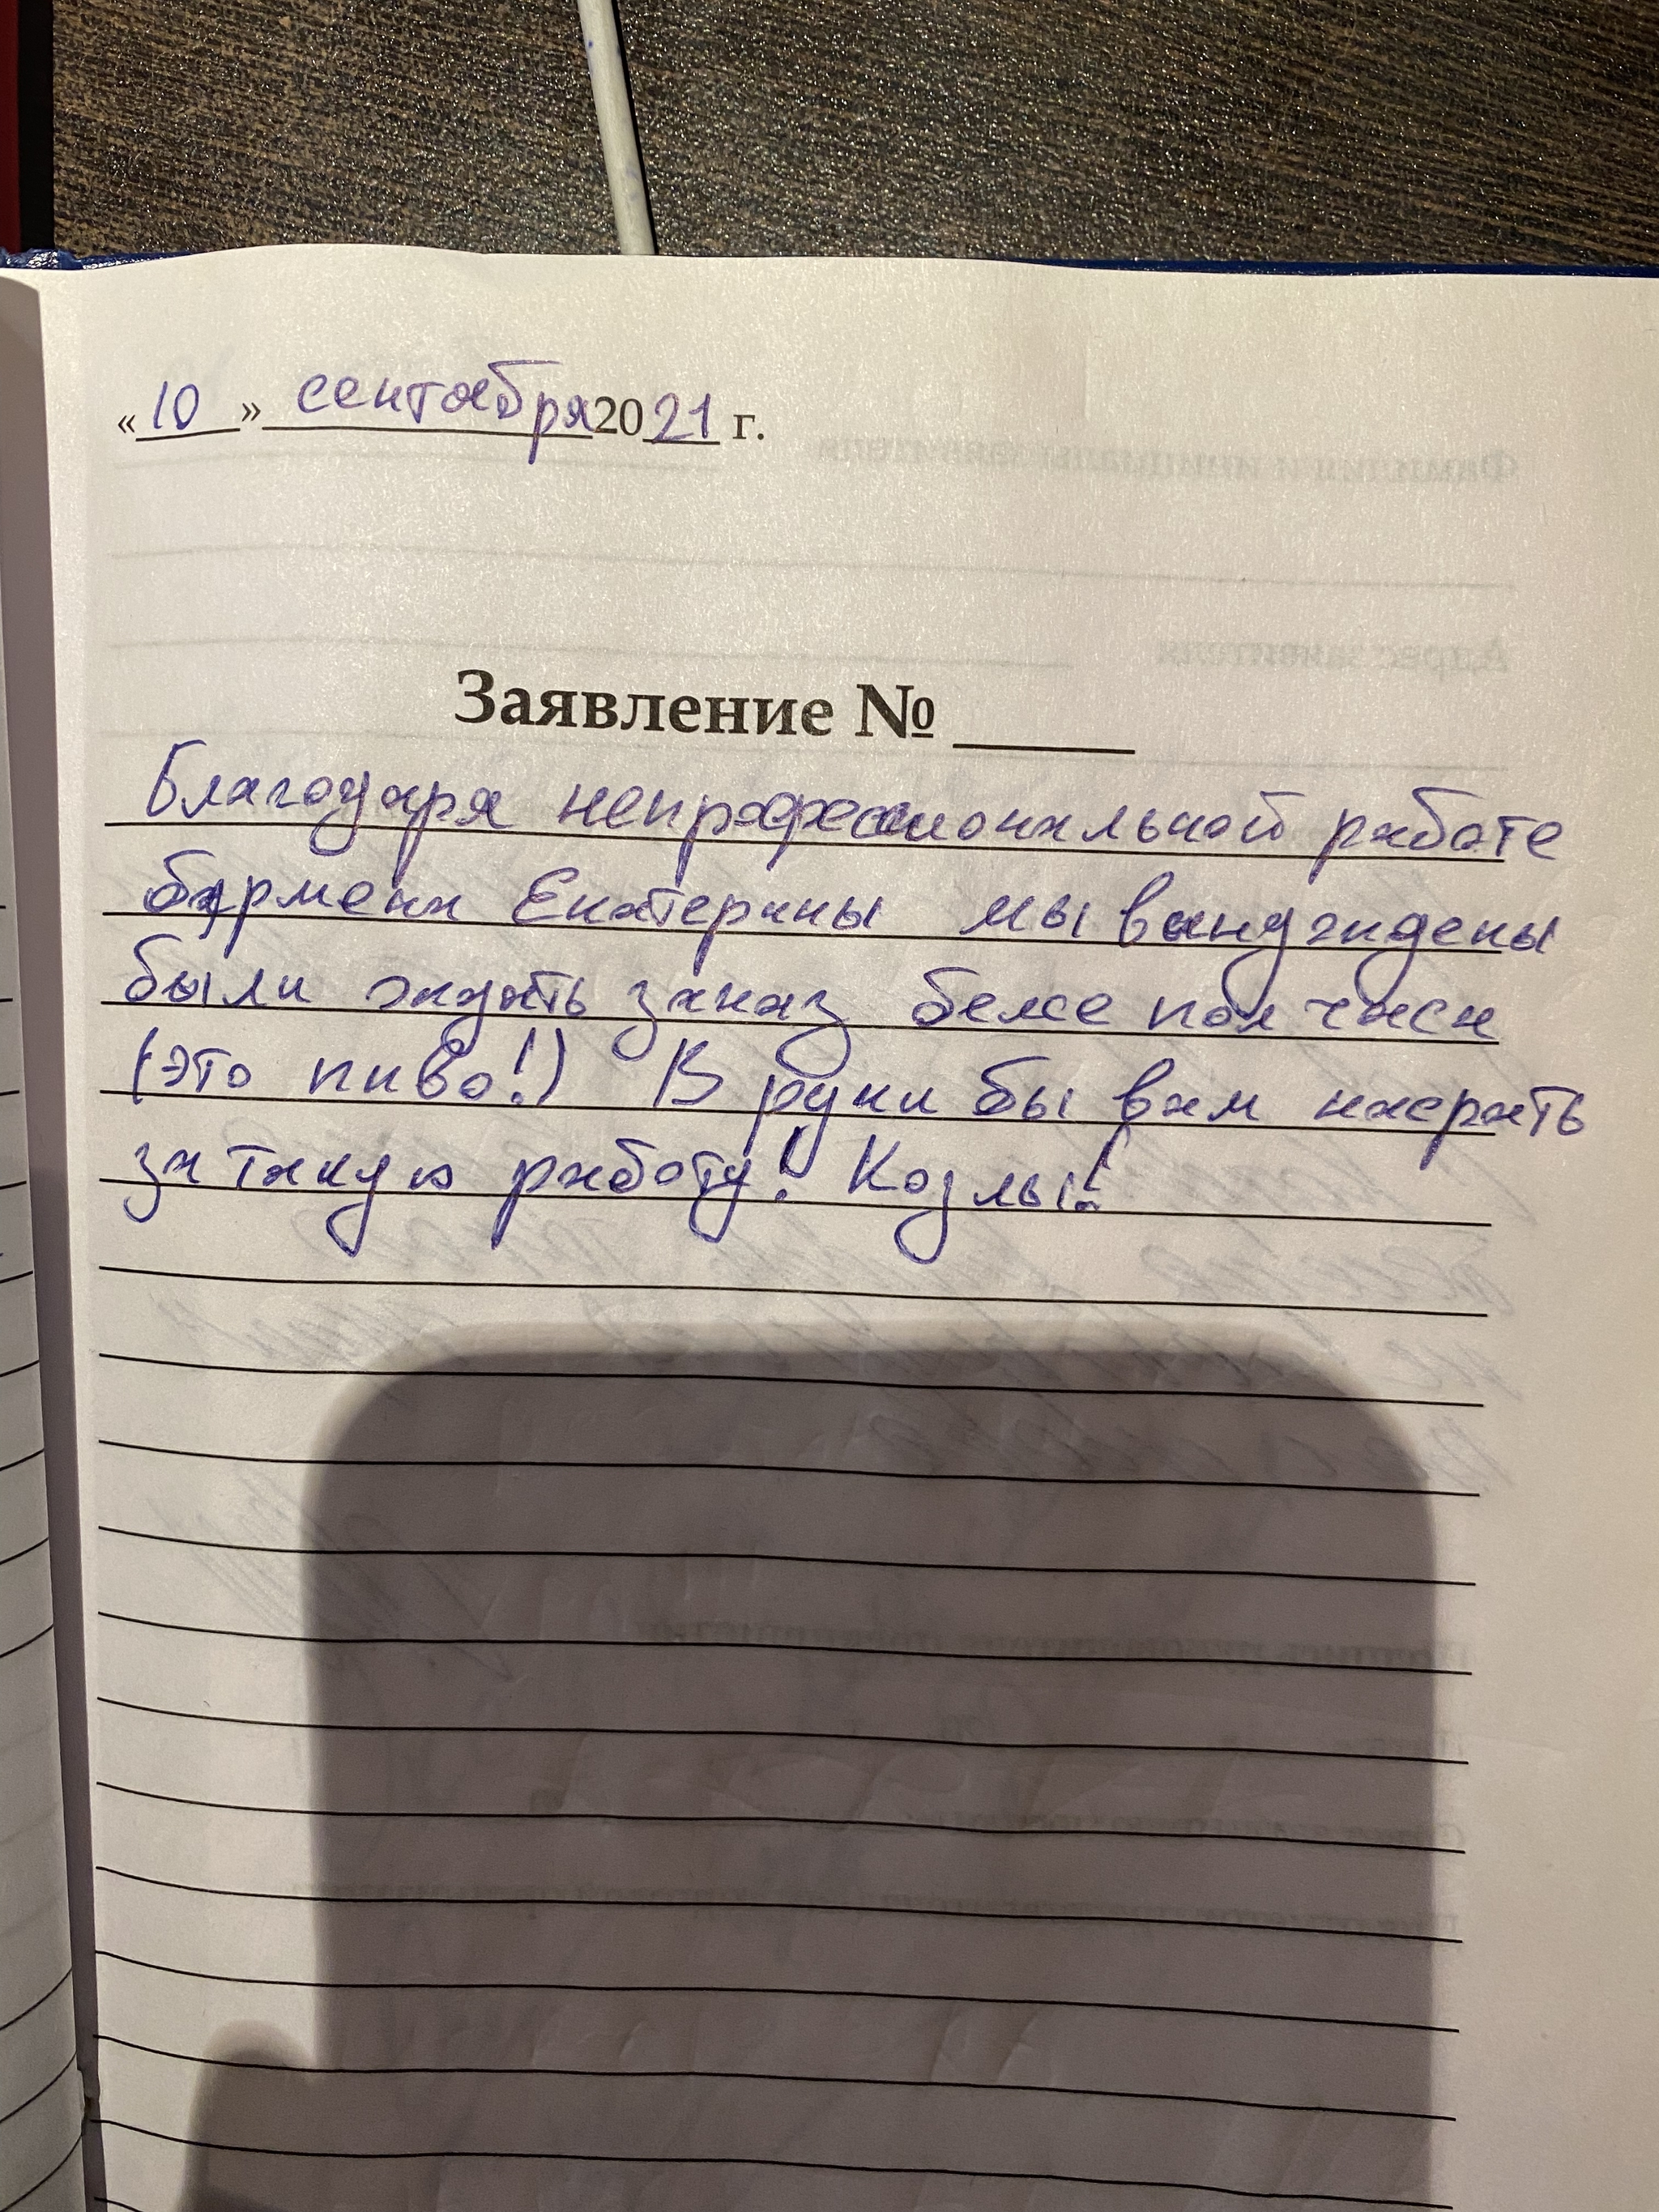 «10» сентября 2021 г.
Заявление № ____
Благодаря непрофессиональной работе
бармена Екатерины мы вынуждены
были ждать заказ более пол часа
(это пиво!) В руки бы вам насрать
за такую работу! Козлы!